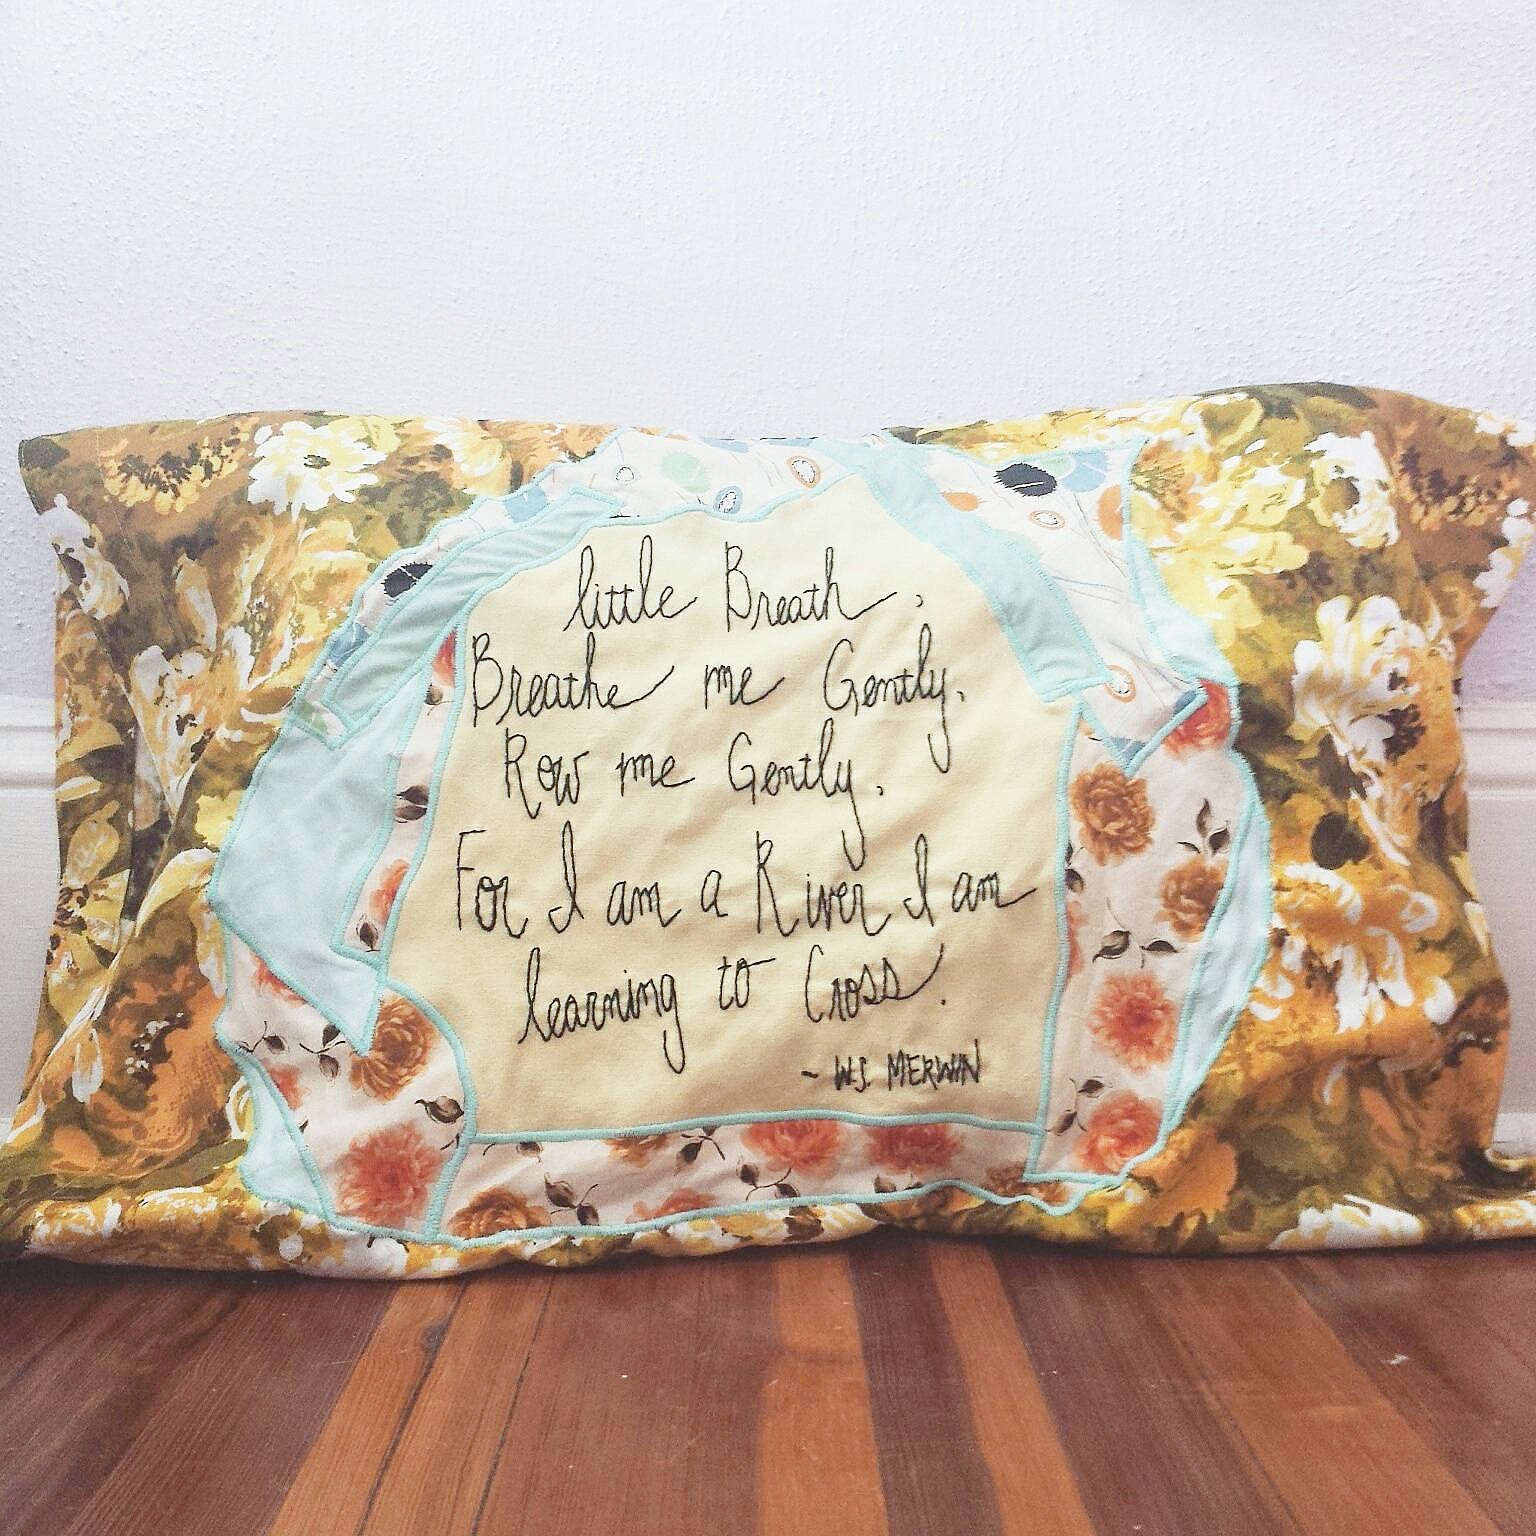 little Breath,
Breathe me Gently,
Row me Gently,
For I am a River I am
learning to Cross.
- W.S. MERWIN